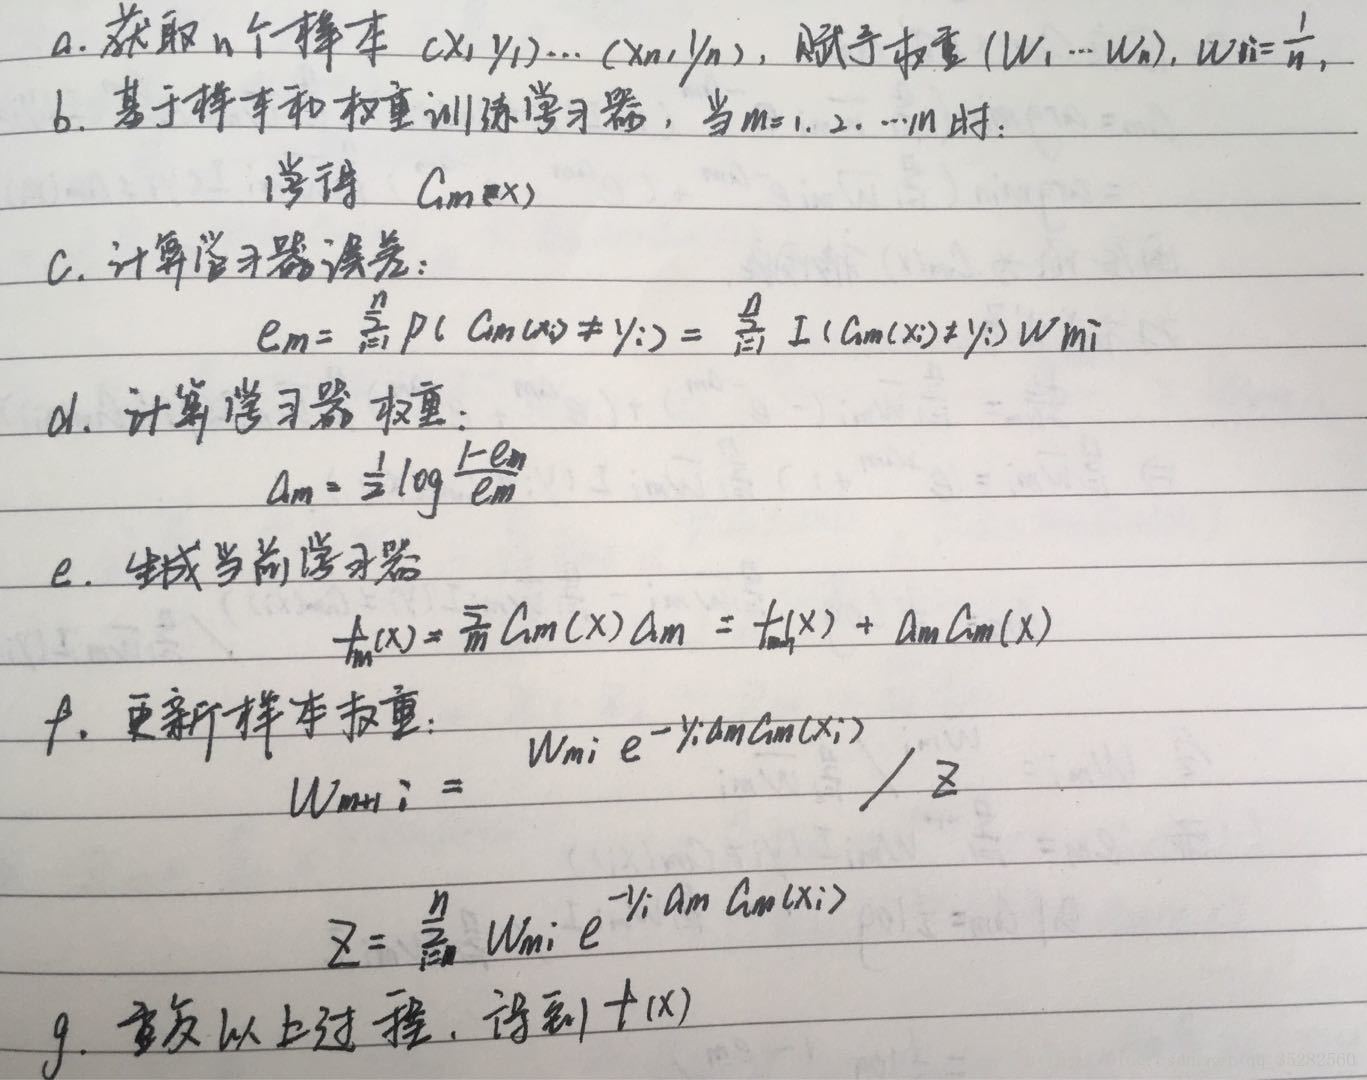 a. 获取n个样本 (x₁ y₁)... (xn, yn), 赋予权重 (W₁ ... Wn), W₁i = 1/n,
b. 基于样本和权重训练学习器, 当m=1. 2. ...m时:
学得 Gm(x)
c. 计算学习器误差:
em = Σ_{i=1}^{n} P( Gm(xi) ≠ yi) = Σ_{i=1}^{n} I (Gm(xi) ≠ yi) Wmi
d. 计算学习器权重:
am = 1/2 log (1-em)/em
e. 生成当前学习器
f_m(x) = Σ_m Gm(x) am = f_{m-1}(x) + am Gm(x)
f. 更新样本权重:
W_{m+1} i = Wmi e^{-yi am Gm(xi)} / Z
Z = Σ_{i=1}^{n} Wmi e^{-yi am Gm(xi)}
g. 重复以上过程. 得到 f(x)